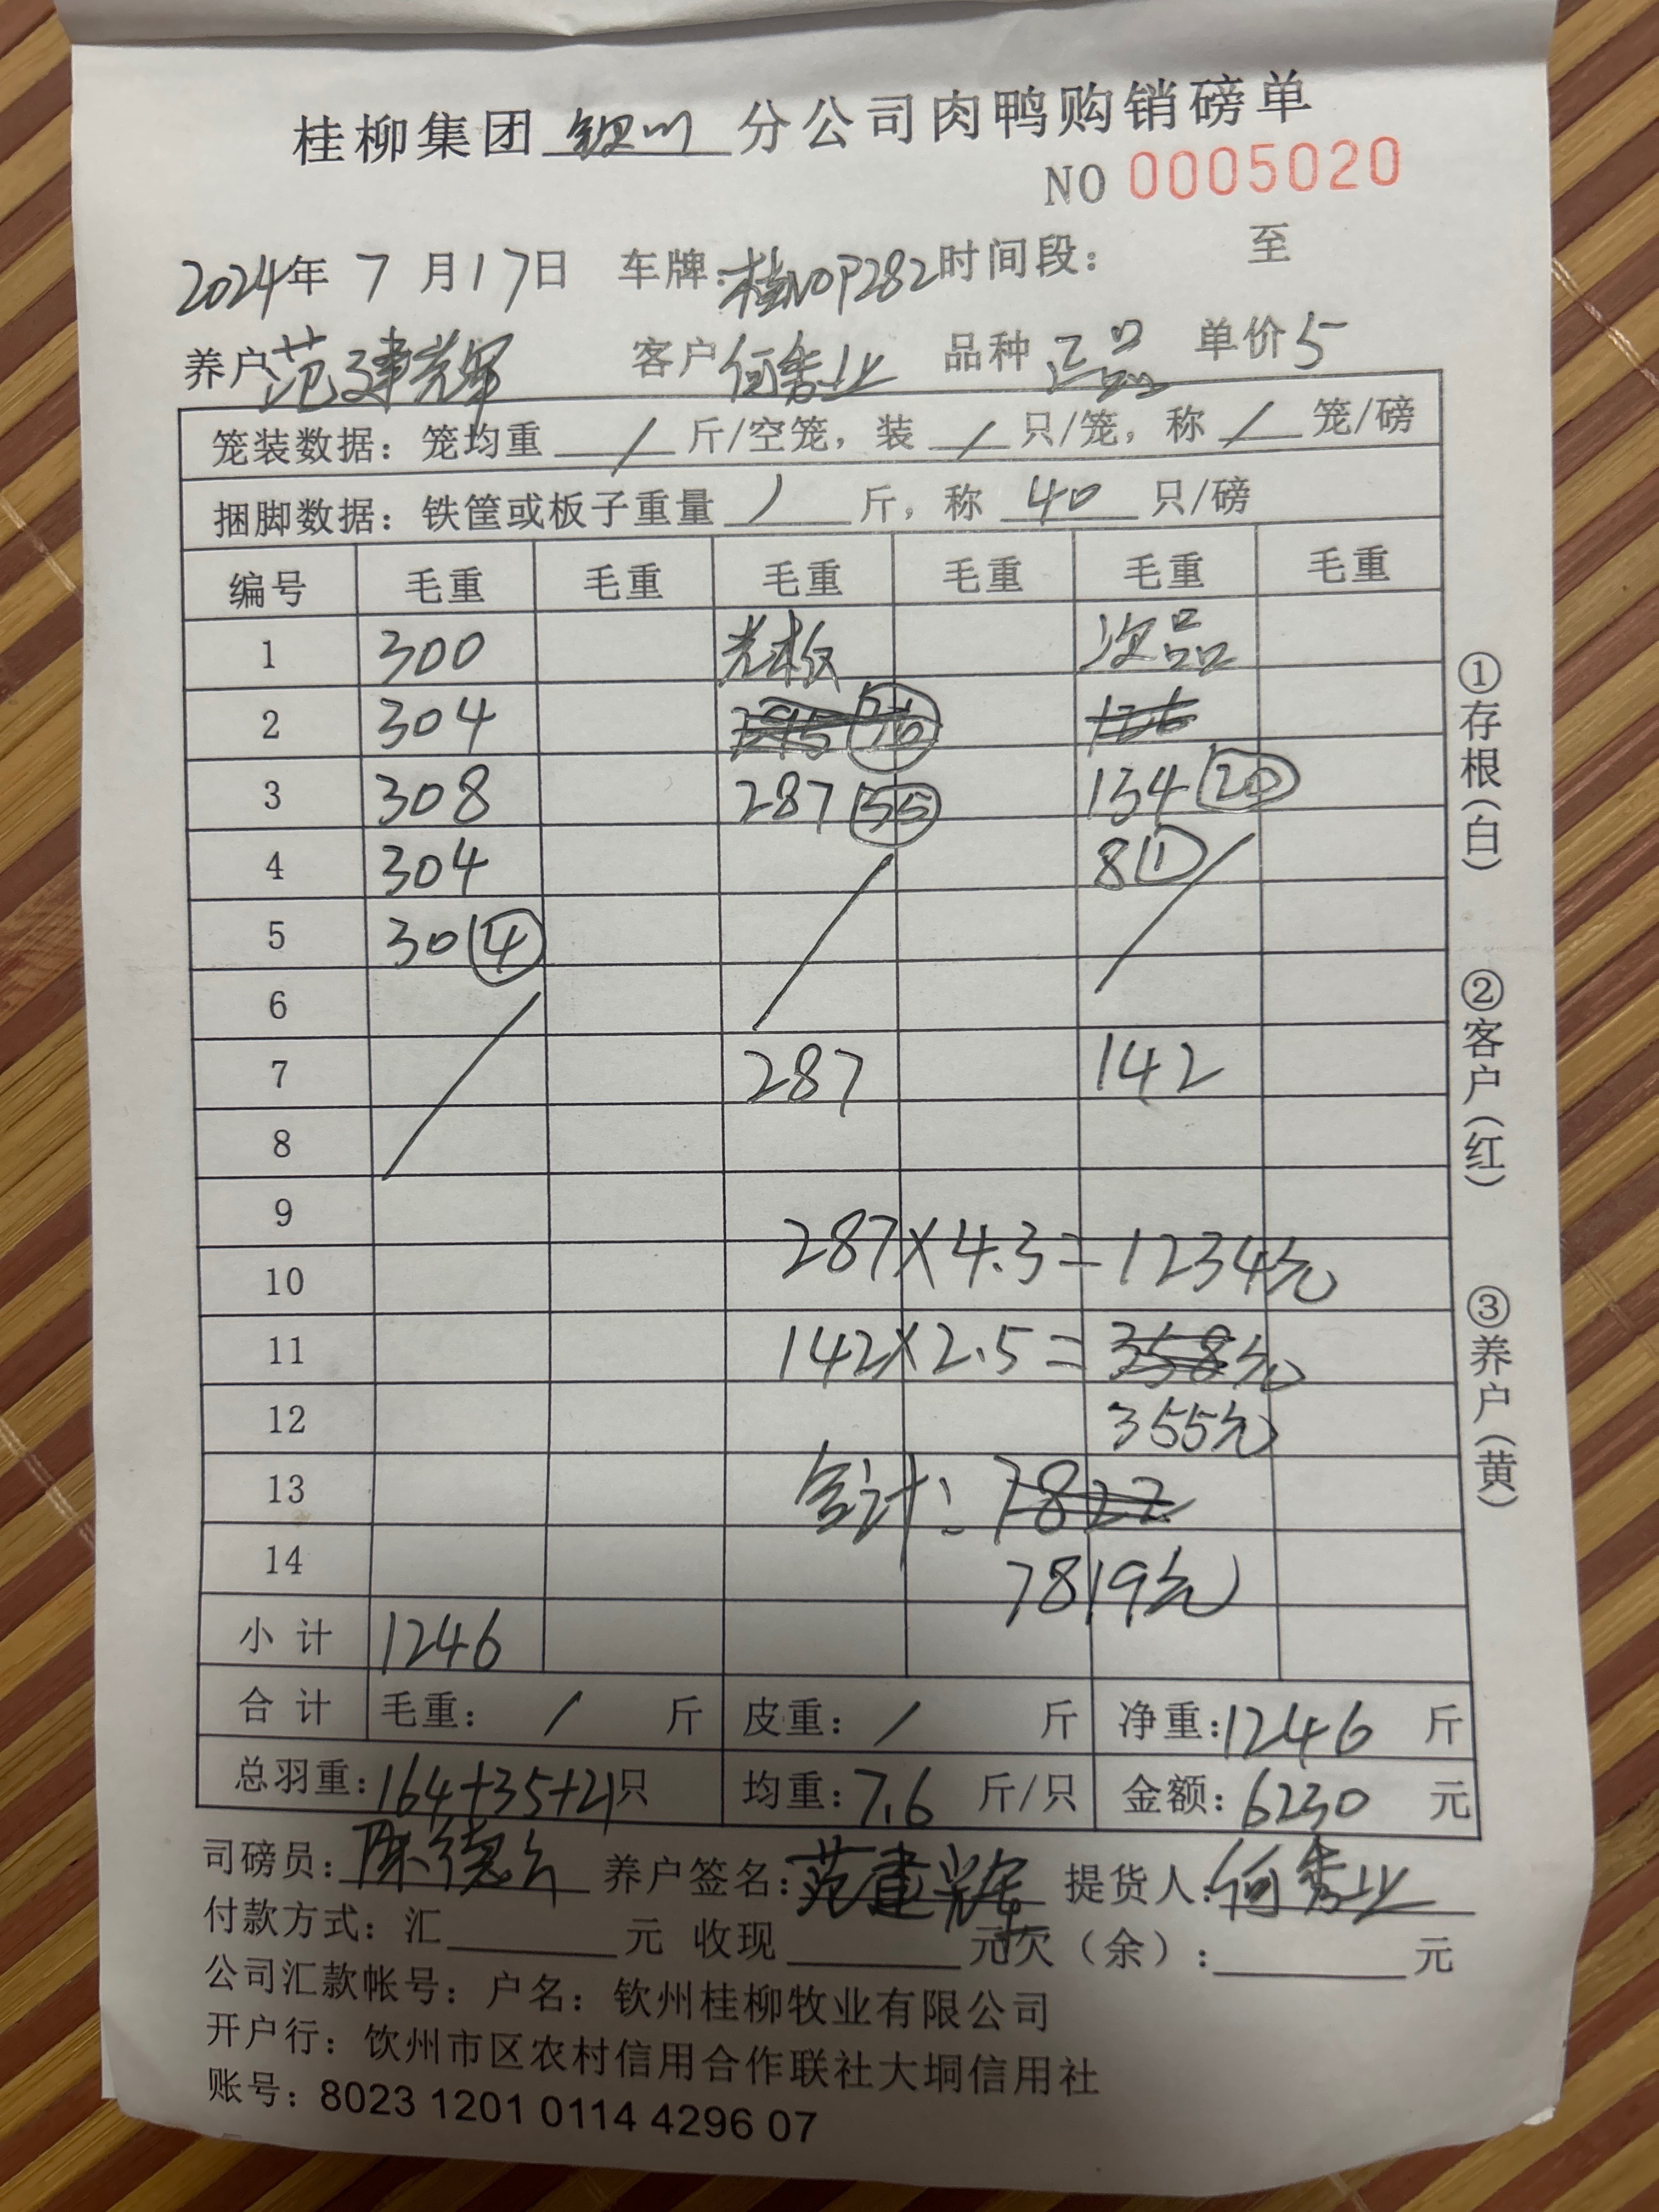 桂柳集团 钦州 分公司肉鸭购销磅单
NO 0005020
2024年 7 月17日 车牌:桂N0P282 时间段: 至
养户 范建辉 客户 何秀业 品种 正品 单价 5
笼装数据: 笼均重 / 斤/空笼, 装 / 只/笼, 称 / 笼/磅
捆脚数据: 铁筐或板子重量 / 斤, 称 40 只/磅
编号 毛重 毛重 毛重 毛重 毛重 毛重
1 300 光板 次品
2 304
3 308 287 35 134 20
4 304 8 1
5 30 4
6
7 287 142
8
9
10 287×4.3=1234元
11 142×2.5=358元
12 355元
13 合计: 7822
14 7819元
小计 1246
合计 毛重: / 斤 皮重: / 斤 净重: 1246 斤
总羽重: 164+35+21只 均重: 7.6 斤/只 金额: 6230 元
司磅员: 陈德 养户签名: 范建辉 提货人: 何秀业
付款方式: 汇 元 收现 元 欠(余): 元
公司汇款帐号: 户名: 钦州桂柳牧业有限公司
开户行: 钦州市区农村信用合作联社大垌信用社
账号: 8023 1201 0114 4296 07
①存根(白)
②客户(红)
③养户(黄)